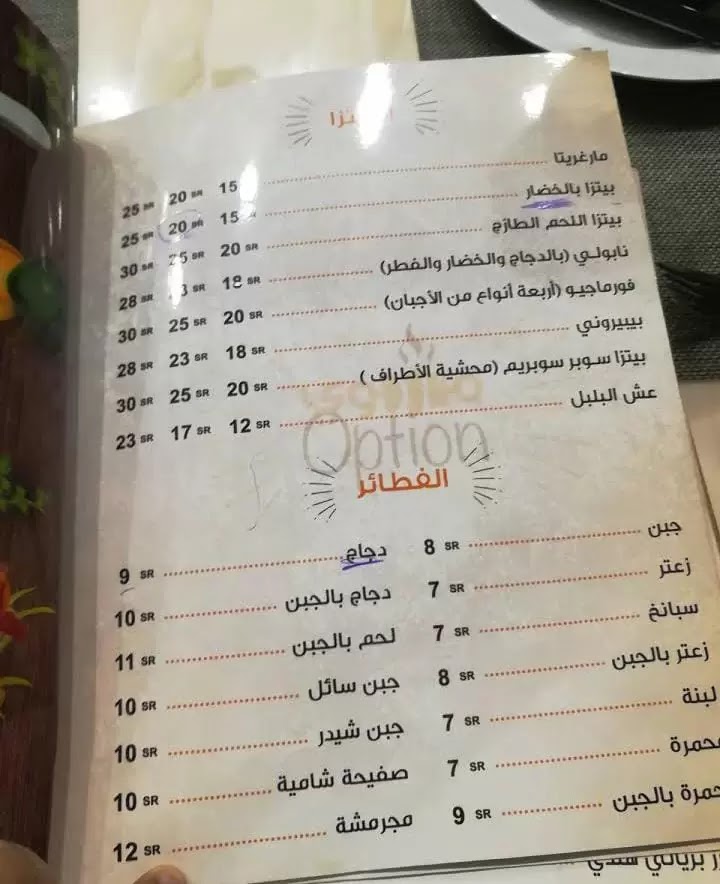 مارغريتا 15 20 SR 25 SR
بيتزا بالخضار 15 20 SR 25 SR
بيتزا اللحم الطازج 20 SR 25 SR 30 SR
نابولي (بالدجاج والخضار والفطر) 18 SR SR 28 SR
فورماجيو (أربعة أنواع من الأجبان) 20 SR 25 SR 30 SR
بيبيروني 18 SR 23 SR 28 SR
بيتزا سوبر سوبريم (محشية الأطراف) 20 SR 25 SR 30 SR
عش البلبل 12 SR 17 SR 23 SR
Option
الفطائر
جبن 8 SR دجاج 9 SR
زعتر 7 SR دجاج بالجبن 10 SR
سبانخ 7 SR لحم بالجبن 11 SR
زعتر بالجبن 8 SR جبن سائل 10 SR
لبنة 7 SR جبن شيدر 10 SR
محمرة 7 SR صفيحة شامية 10 SR
حمرة بالجبن 9 SR مجرمشة 12 SR